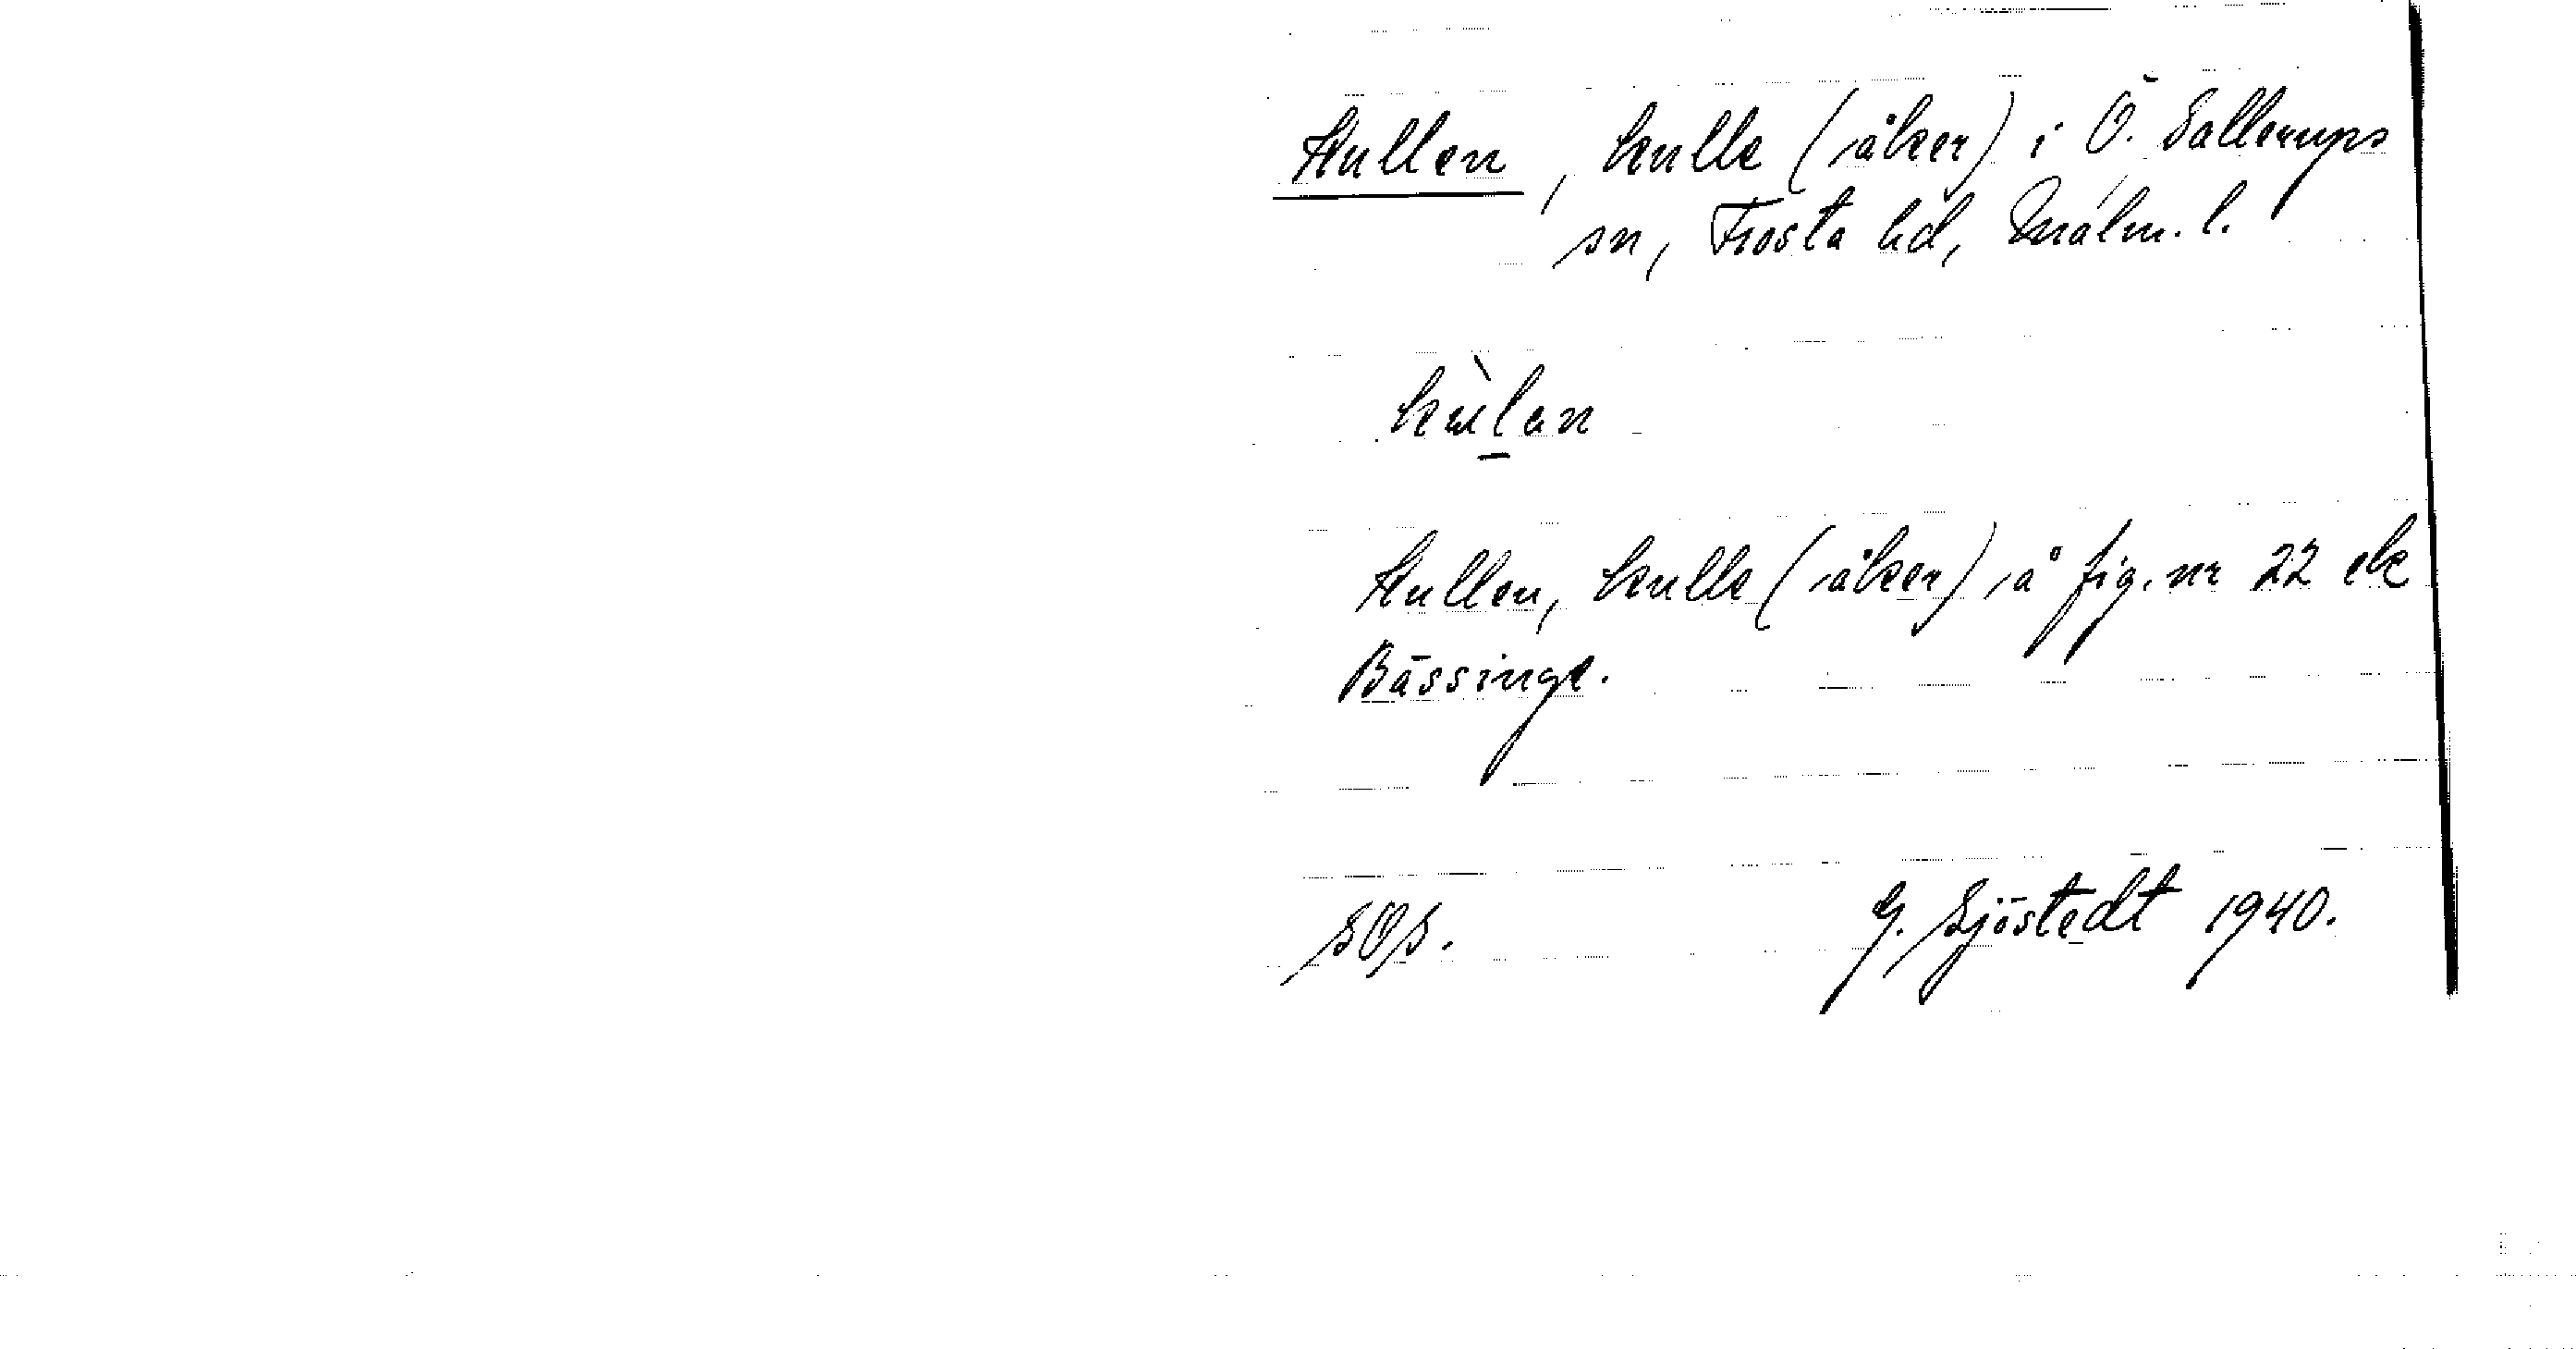 Kullen, kulle (åker) i Ö. Sallerups
sn, Frosta hd, Malm. l.
kùlan
Kullen, kulle (åker) å fig. nr 22 ek
Bässinge.
SOS. G. Sjöstedt 1940.